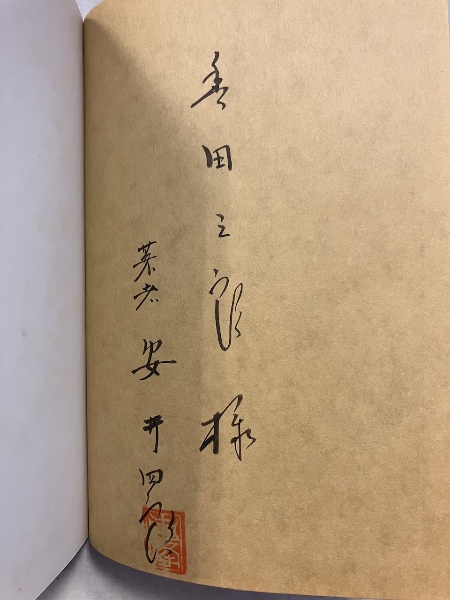 香田三郎様
著者 安井四郎